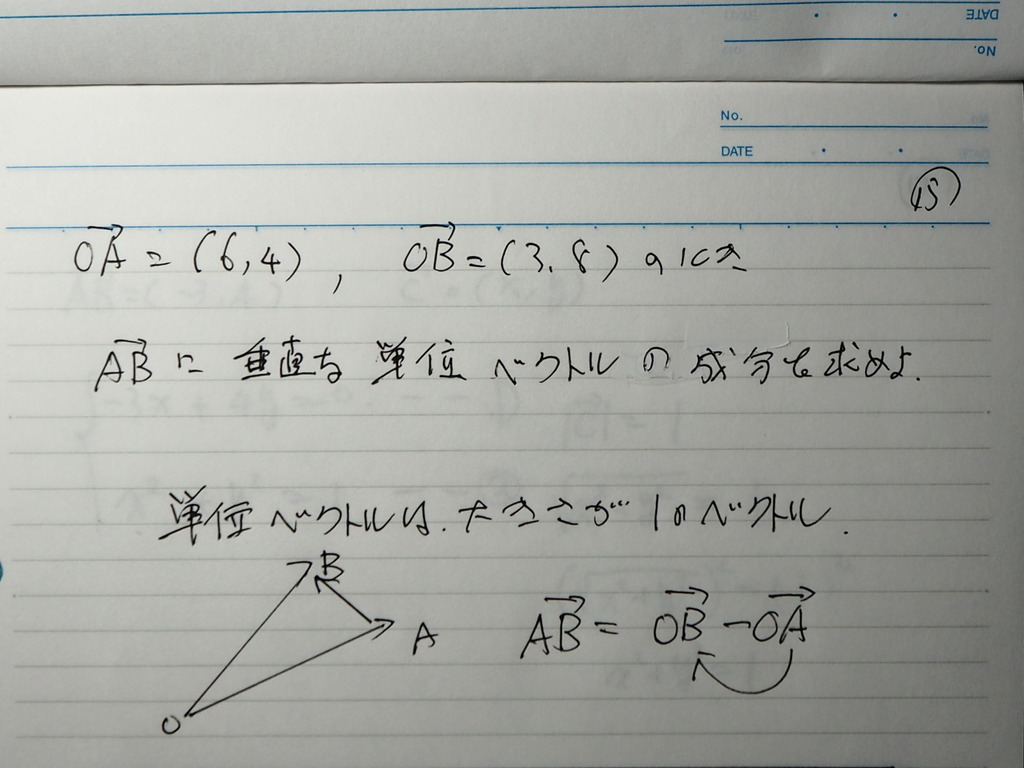 DATE
No.
No.
DATE
15
OA = (6,4), OB = (3,8) のとき
ABに 垂直な 単位 ベクトルの 成分を求めよ.
単位 ベクトルは、大きさが 1のベクトル.
B
A
AB = OB - OA
O